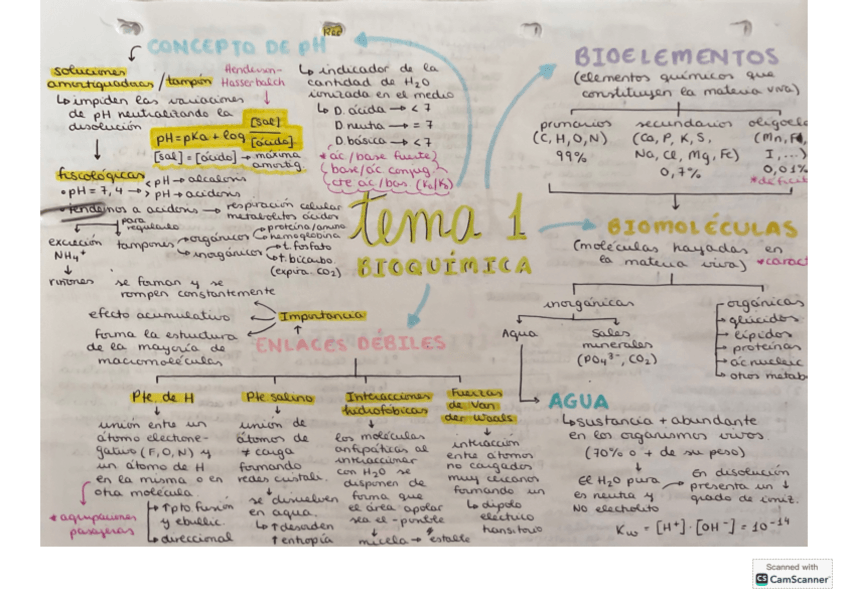 Rec
CONCEPTO DE pH
soluciones
amortiguadoras/tampón
Henderson-
Hasserbalch
↳ impiden las variaciones
de pH neutralizando la
disolución
pH = pKa + log [sal]/[ácido]
[sal] = [ácido] → máxima
amortig.
fisiológicas
• pH = 7,4 → < pH → alcalosis
> pH → acidosis
• tendemos a acidosis → respiración celular
metabolitos ácidos
para
regularlo
excreción
NH4+
↓
riñones
tampones
orgánicos
proteína/amino
hemoglobina
inorgánicos
t. fosfato
t. bicarbo.
(expira. CO2)
↳ indicador de la
cantidad de H2O
ionizada en el medio
↳ D. ácida → < 7
D. neutra → = 7
D. básica → < 7
* ác/base fuerte
base/ác conjug.
cte ác/bas (Ka/Kb)
tema 1
BIOQUÍMICA
BIOELEMENTOS
(elementos químicos que
constituyen la materia viva)
primarios
(C, H, O, N)
99%
secundarios
(Ca, P, K, S,
Na, Cl, Mg, Fe)
0,7%
oligoele
(Mn, F,
I, ...)
0,01%
*déficit
BIOMOLÉCULAS
(moléculas hayadas en
la materia viva)
*caract
inorgánicas
Agua
Sales
minerales
(PO4³⁻, CO2)
orgánicas
glúcidos
lípidos
proteínas
ác nucleic
otros metab
AGUA
↳ sustancia + abundante
en los organismos vivos.
(70% o + de su peso)
↓
El H2O pura
es neutra y
NO electrolito
→ En disolución
presenta un ↓
grado de ioniz.
Kw = [H+]·[OH-] = 10⁻¹⁴
ENLACES DÉBILES
Importancia
se forman y se
rompen constantemente
efecto acumulativo
forma la estructura
de la mayoría de
macromoléculas
Pte. de H
unión entre un
átomo electrone-
gativo (F, O, N) y
un átomo de H
en la misma o en
otra molécula
* agrupaciones
pasajeras
↑pto fusión
y ebullic.
direccional
Pte salino
unión de
átomos de
≠ carga
formando
redes cristali.
↓
se disuelven
en agua.
↳ ↑ desorden
↑ entropía
Interacciones
hidrofóbicas
las moléculas
anfipáticas al
interaccionar
con H2O se
disponen de
forma que
el área apolar
sea el - posible
micela → +estable
Fuerzas
de Van
der Waals
interacción
entre átomos
no cargados
muy cercanos
formando un
↳ dipolo
eléctrico
transitorio
Scanned with
CS CamScanner